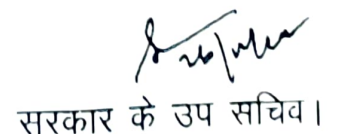 सरकार के उप सचिव।